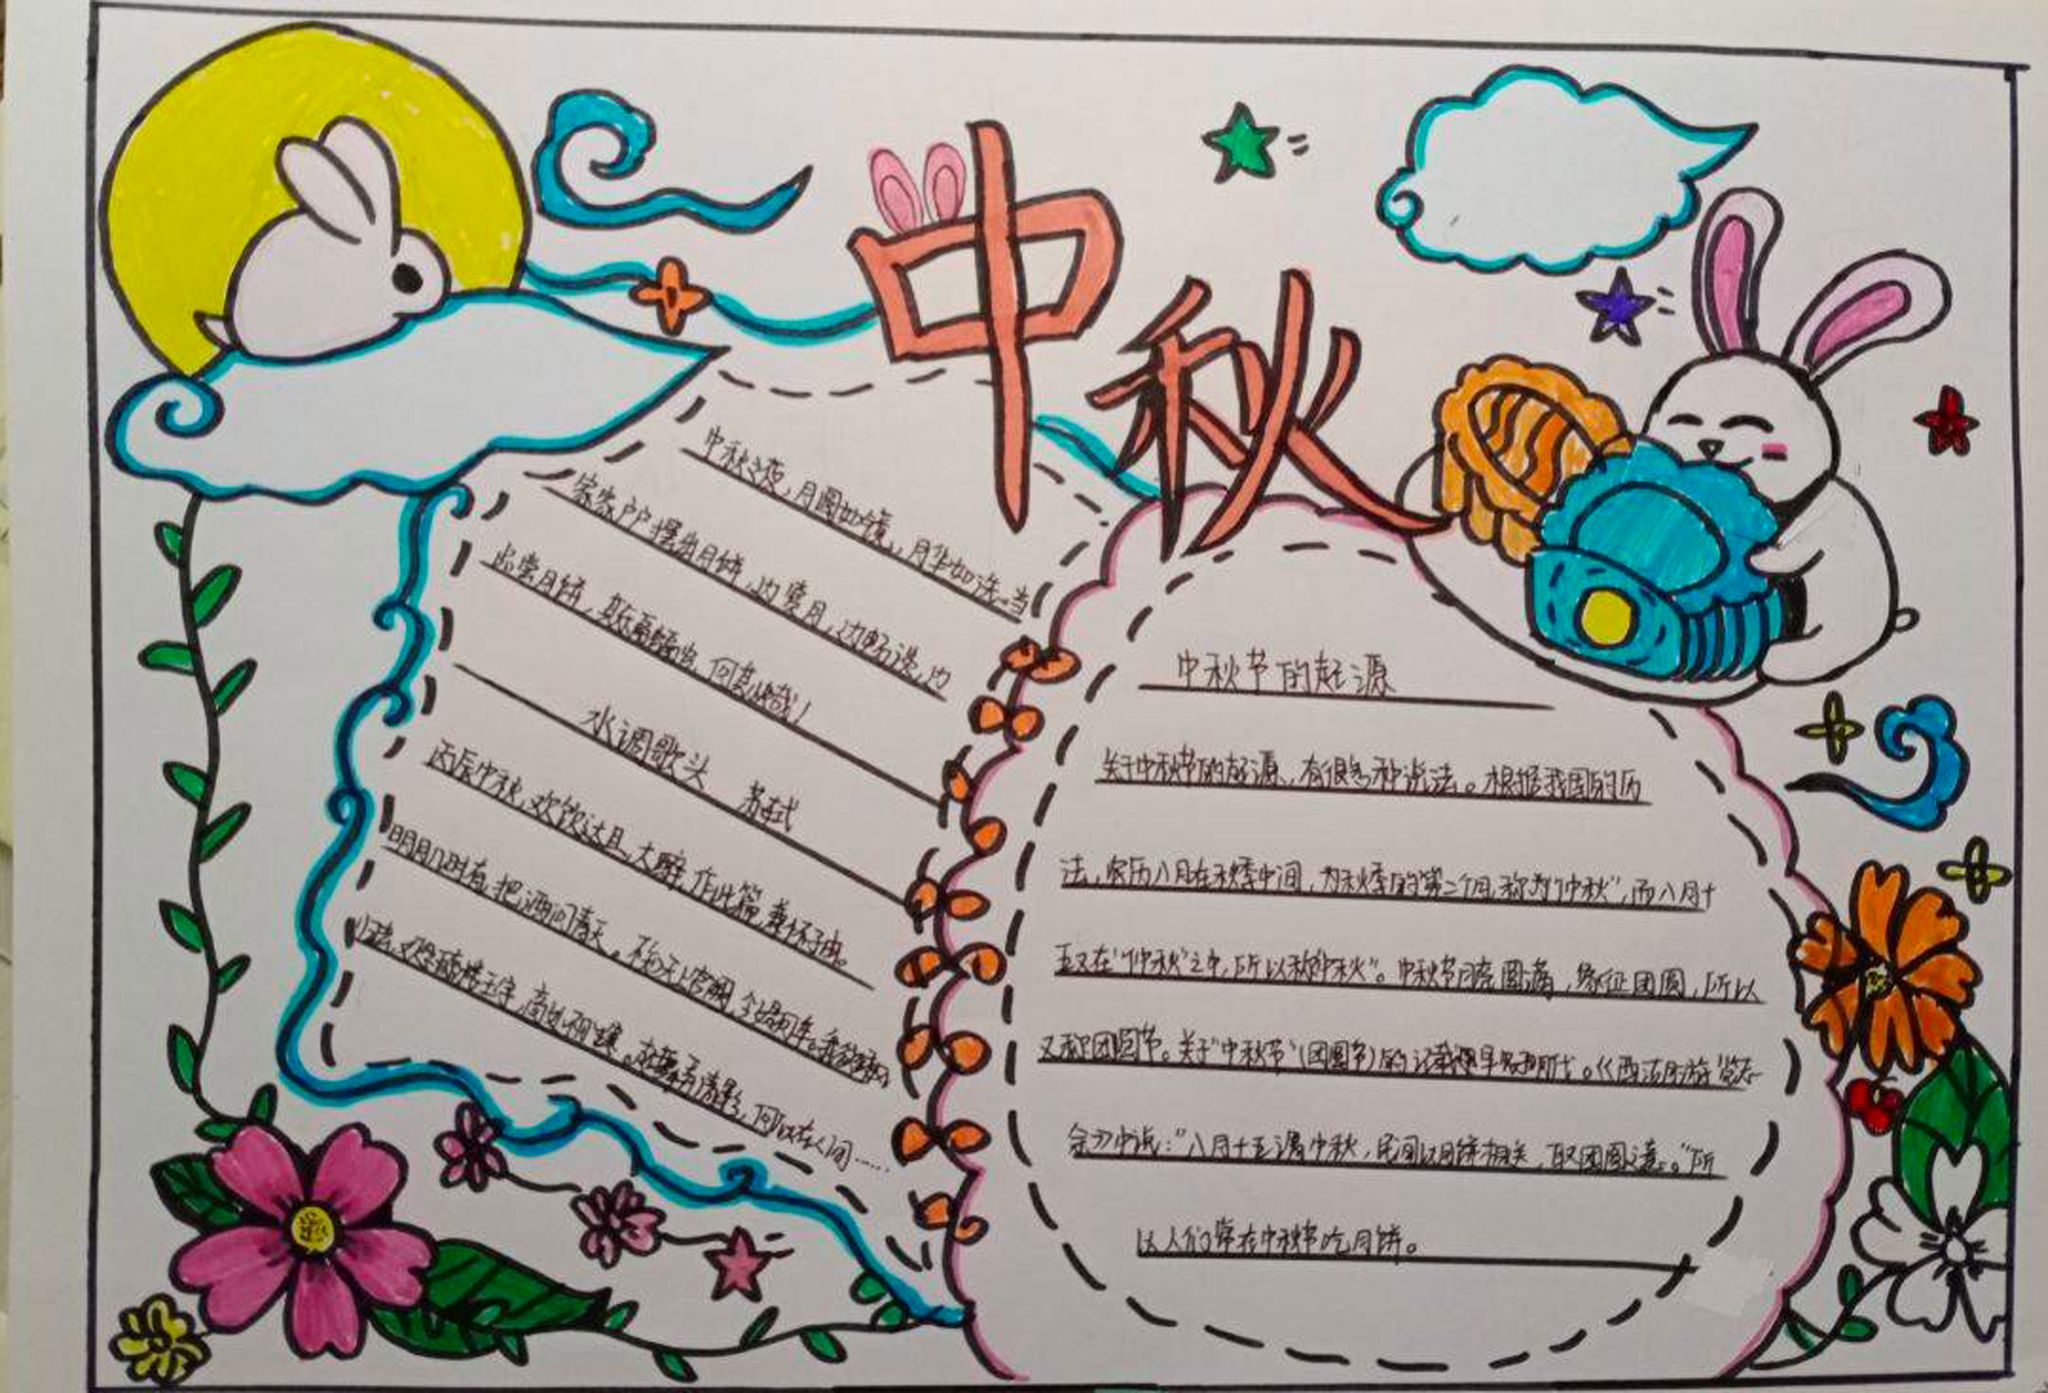 中秋
中秋之夜，月圆如镜，月华如洗。当
家家户户摆出月饼，边赏月，边畅谈，边
品尝月饼，其乐融融也，何其快哉！
水调歌头 苏轼
丙辰中秋，欢饮达旦，大醉，作此篇，兼怀子由。
明月几时有，把酒问青天。不知天上宫阙，今夕是何年。我欲乘风
归去，又恐琼楼玉宇，高处不胜寒。起舞弄清影，何似在人间……
中秋节的起源
关于中秋节的起源，有很多种说法。根据我国的历
法，农历八月在秋季中间，为秋季的第二个月，称为“仲秋”，而八月十
五又在“仲秋”之中，所以称“中秋”。中秋节月亮圆满，象征团圆，所以
又称团圆节。关于“中秋节”(团圆节)的记载最早见于明代。《西湖游览志
余》中说：“八月十五谓中秋，民间以月饼相送，取团圆之意。”所
以人们常在中秋节吃月饼。